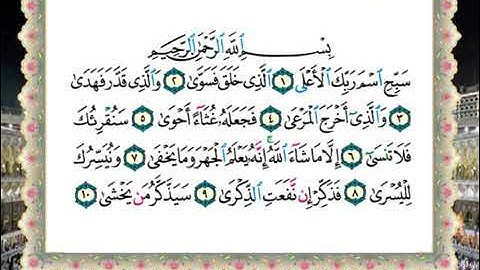 بِسْمِ اللَّهِ الرَّحْمَٰنِ الرَّحِيمِ
سَبِّحِ اسْمَ رَبِّكَ الْأَعْلَى ١ الَّذِي خَلَقَ فَسَوَّىٰ ٢ وَالَّذِي قَدَّرَ فَهَدَىٰ
٣ وَالَّذِي أَخْرَجَ الْمَرْعَىٰ ٤ فَجَعَلَهُ غُثَاءً أَحْوَىٰ ٥ سَنُقْرِئُكَ
فَلَا تَنسَىٰ ٦ إِلَّا مَا شَاءَ اللَّهُ إِنَّهُ يَعْلَمُ الْجَهْرَ وَمَا يَخْفَىٰ ٧ وَنُيَسِّرُكَ
لِلْيُسْرَىٰ ٨ فَذَكِّرْ إِن نَّفَعَتِ الذِّكْرَىٰ ٩ سَيَذَّكَّرُ مَن يَخْشَىٰ ١٠